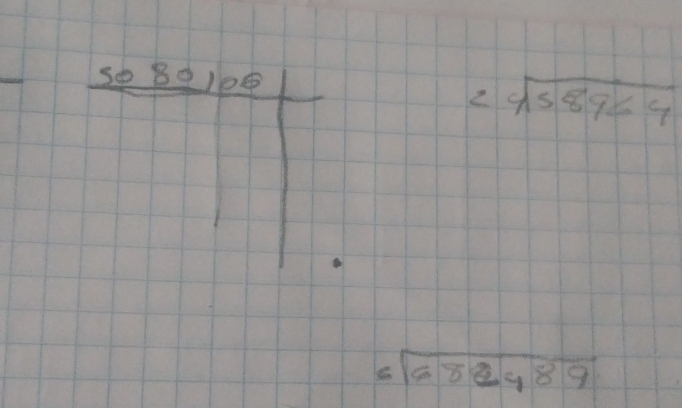 50 80 106
24 58964
6 682489